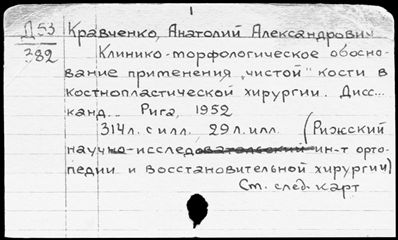 Д 53
382
Кравченко, Анатолий Александрович
Клинико-морфологическое обосно-
вание применения „чистой" кости в
костнопластической хирургии. Дисс...
канд... Рига, 1952
314 л. с илл., 29 л. илл. (Рижский
научно-исследовательский ин-т орто-
педии и восстановительной хирургии)
См. след. карт